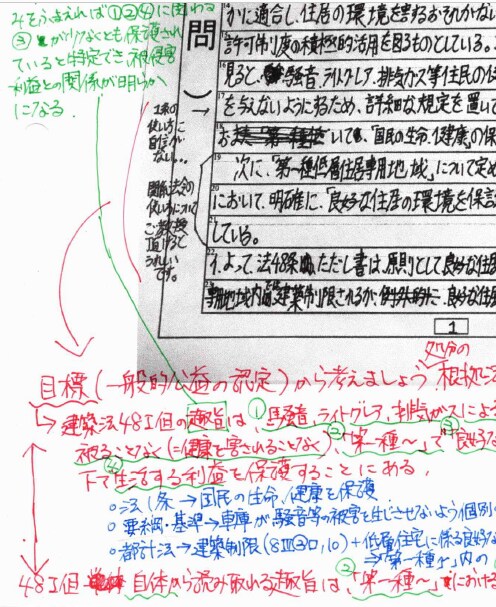 みをふまえれば①②④に関わ
③がりなくとも保護され
ていると特定でき、被侵害
利益との関係が明らか
になる.
1条の
使い方に
自信が
ない…
関係法令の
使い方について
ご教授
頂けると
うれしい
です。
問
かに適合し、住居の環境を害するおそれがな
許可制度の積極的活用を図るものとしている。
見ると、騒音、ライトグレア、排気ガス等住民の
を与えないようにするため、詳細な規定を置いて
いて、「国民の生命、健康」の保
次に、「第一種低層住居専用地域」について定め
において、明確に、「良好な住居の環境を保
している。
イ.よって、法48条 ただし書は、原則として良好な住居
専用地域内 建築制限されるが、例外的に、良好な住
1
処分の
目標(一般的公益の認定)から考えましょう。根拠法
↳建築法48Ⅰ但の趣旨は、①騒音、ライトグレア、排気ガスによ
被ることなく(=健康を害されることなく)、②「第一種〜」で③「良好な
下で④生活する利益を保護することにある.
○法1条→国民の生命、健康を保護
○要綱・基準→車庫が騒音等の被害を生じさせないよう個別
○都計法→建築制限(8Ⅲ②ロ,10)+低層住宅に係る良好な
⇒「第一種〜」内の
48Ⅰ但 自体から読み取れる趣旨は、②「第一種〜」における